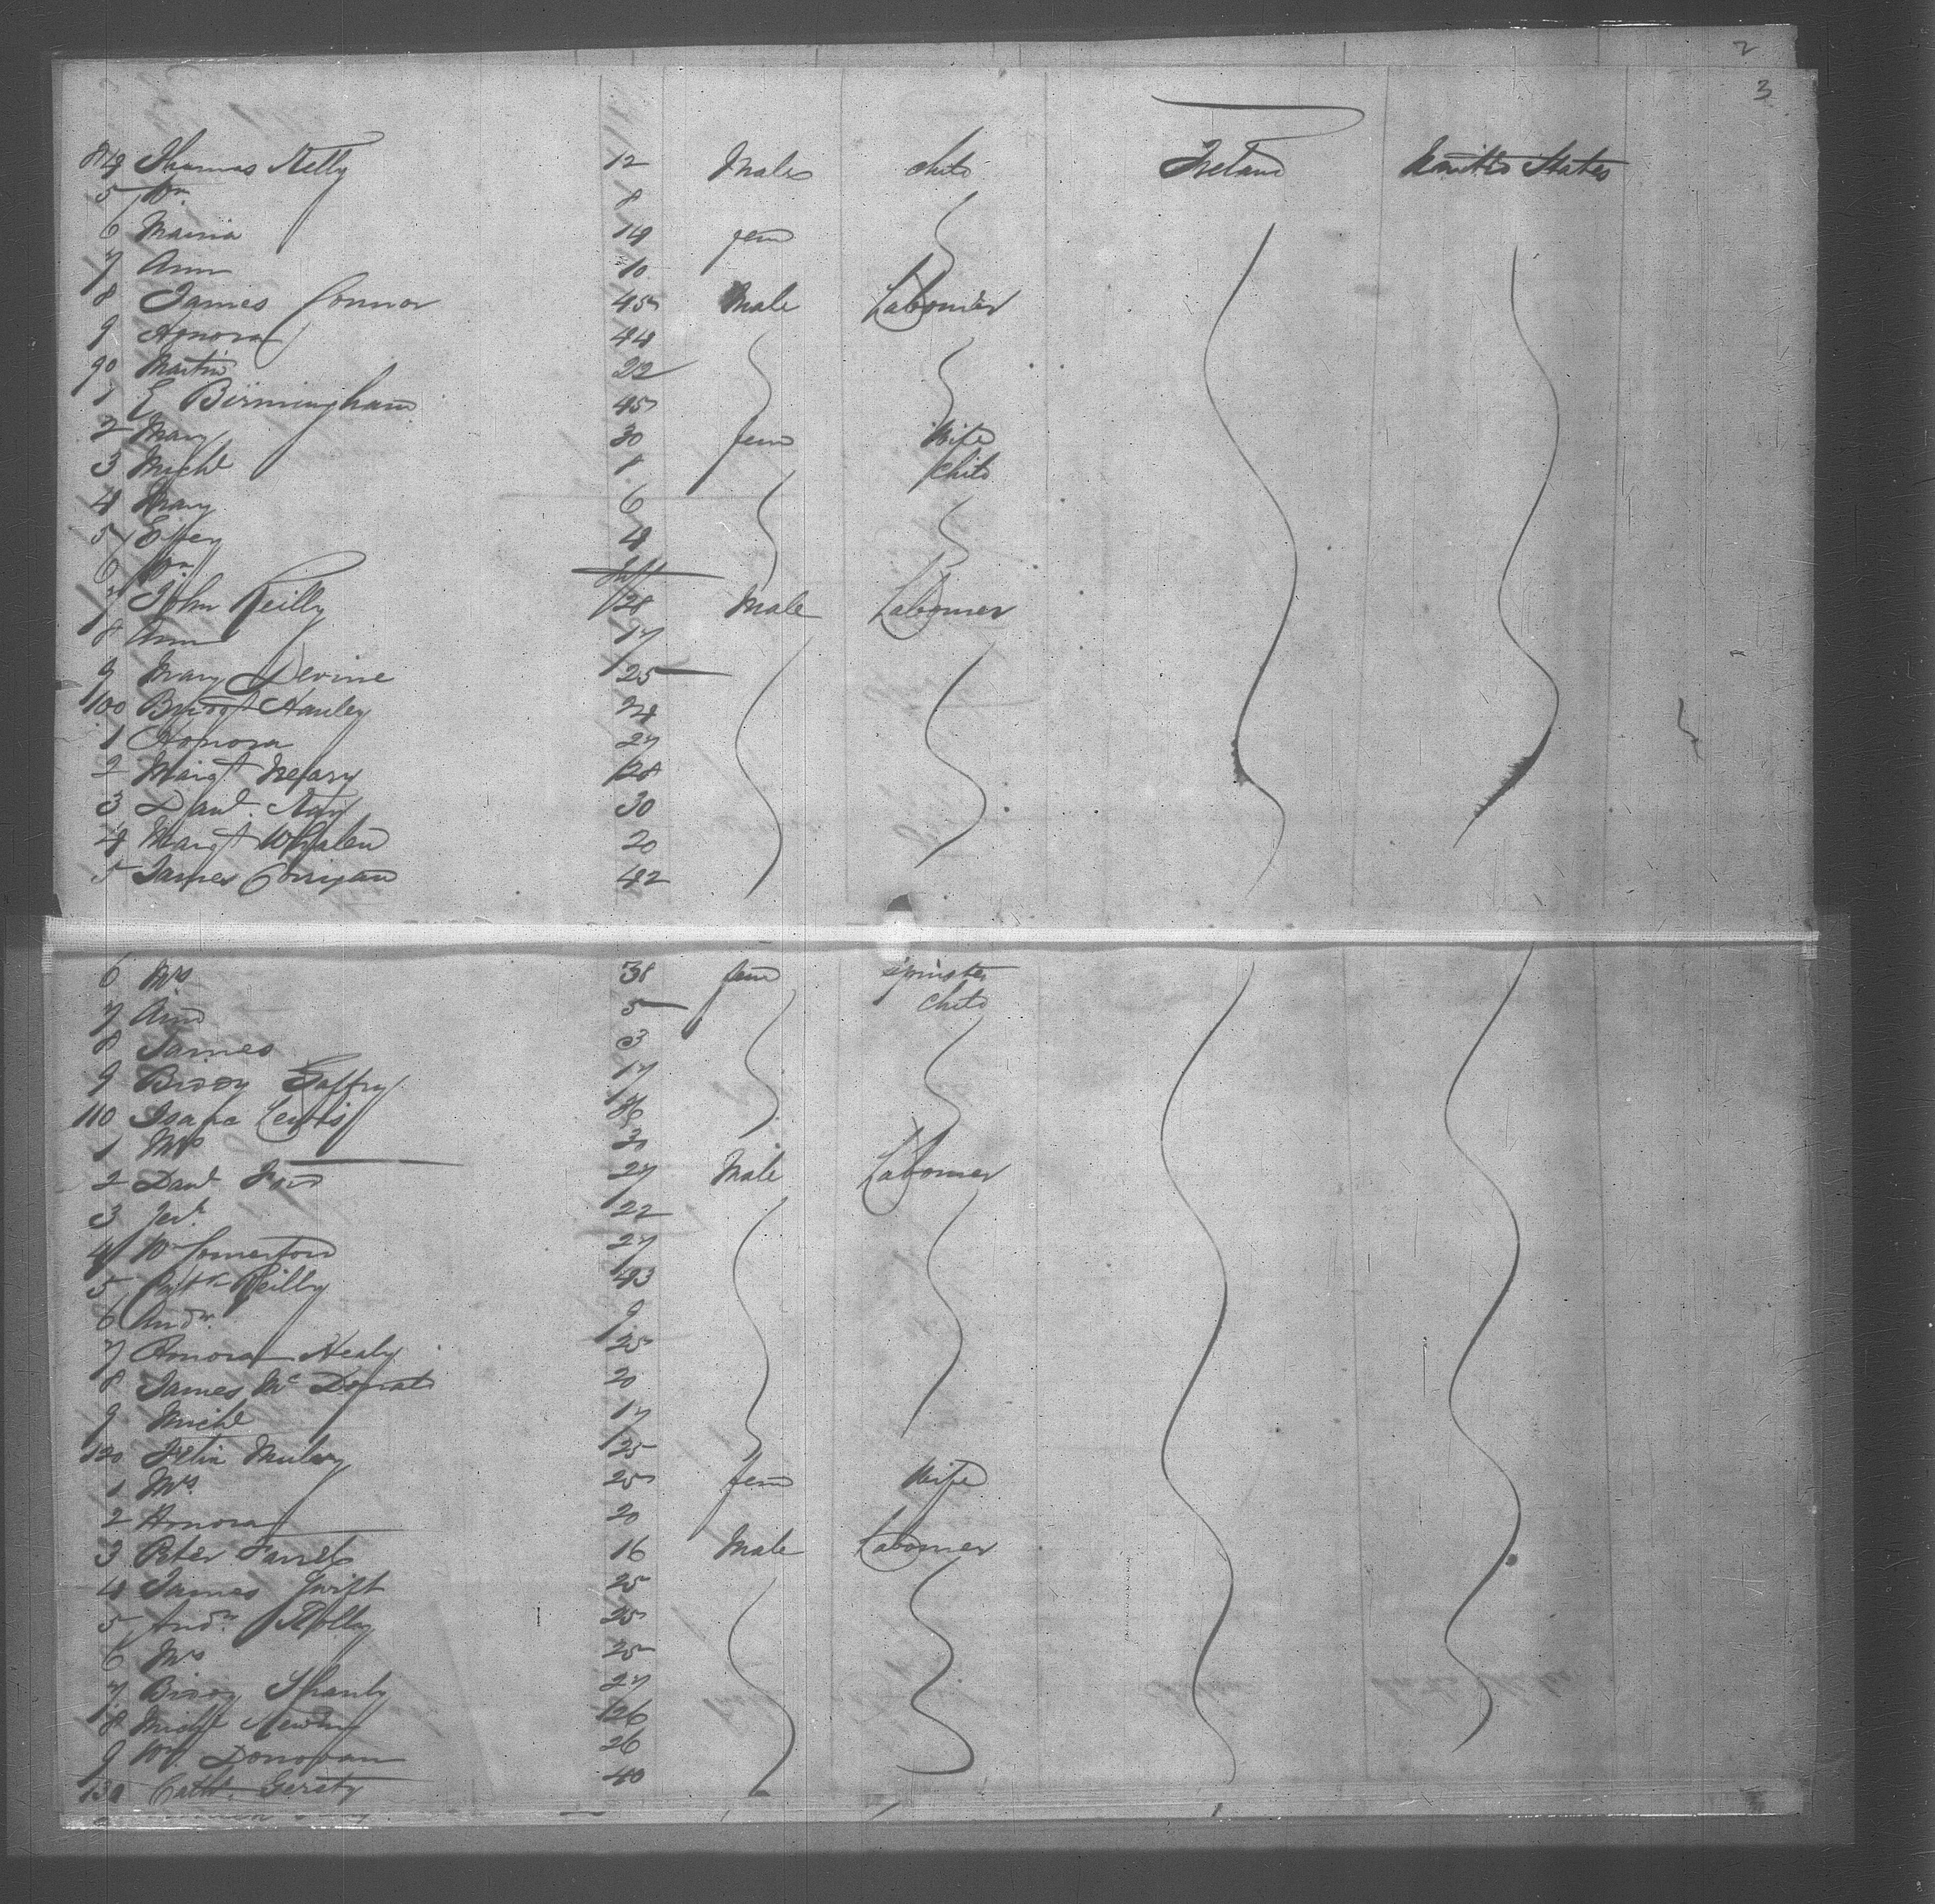 2
3
84 Thomas Kelly 12 Male child Ireland United States
5 Wm 8
6 Maria 14 fem
7 Ann 10
8 James Connor 45 Male Labourer
9 Honora 44
90 Martin 22
1 E Birmingham 45
2 Mary 30 fem Wife
3 Michl 8 child
4 Mary 6
5 4
6 Wm Inft
7 John Reilly 28 Male Labourer
8 Ann 17
9 Mary Devine 25
100 Bridgt Hanley 24
1 Honora 27
2 Margt Neary 28
3 Danl. 30
4 Margt Whalen 20
5 James Corrigan 42
6 Mrs 38 fem spinster
7 Ann 5 child
8 James 3
9 Biddy Gaffry 17
110 Lewis
1 Mrs 30
2 Danl 27 Male Labourer
3 Jerh. 22
4 W Somerton 27
5 Patk Reilly 43
6 Andw. 9
7 Honora Healy 25
8 James Mc Donald 20
9 Michl 17
120 Felix Mulvy 25
1 Mrs. 25 fem Wife
2 Honora 20
3 Peter Farrel 16 Male Labourer
4 James Swift 25
5 Andw. 25
6 Mrs 25
7 Biddy Shanly 27
8 Michl 26
9 Wm. Donovan 26
130 Cath. Gerety 40